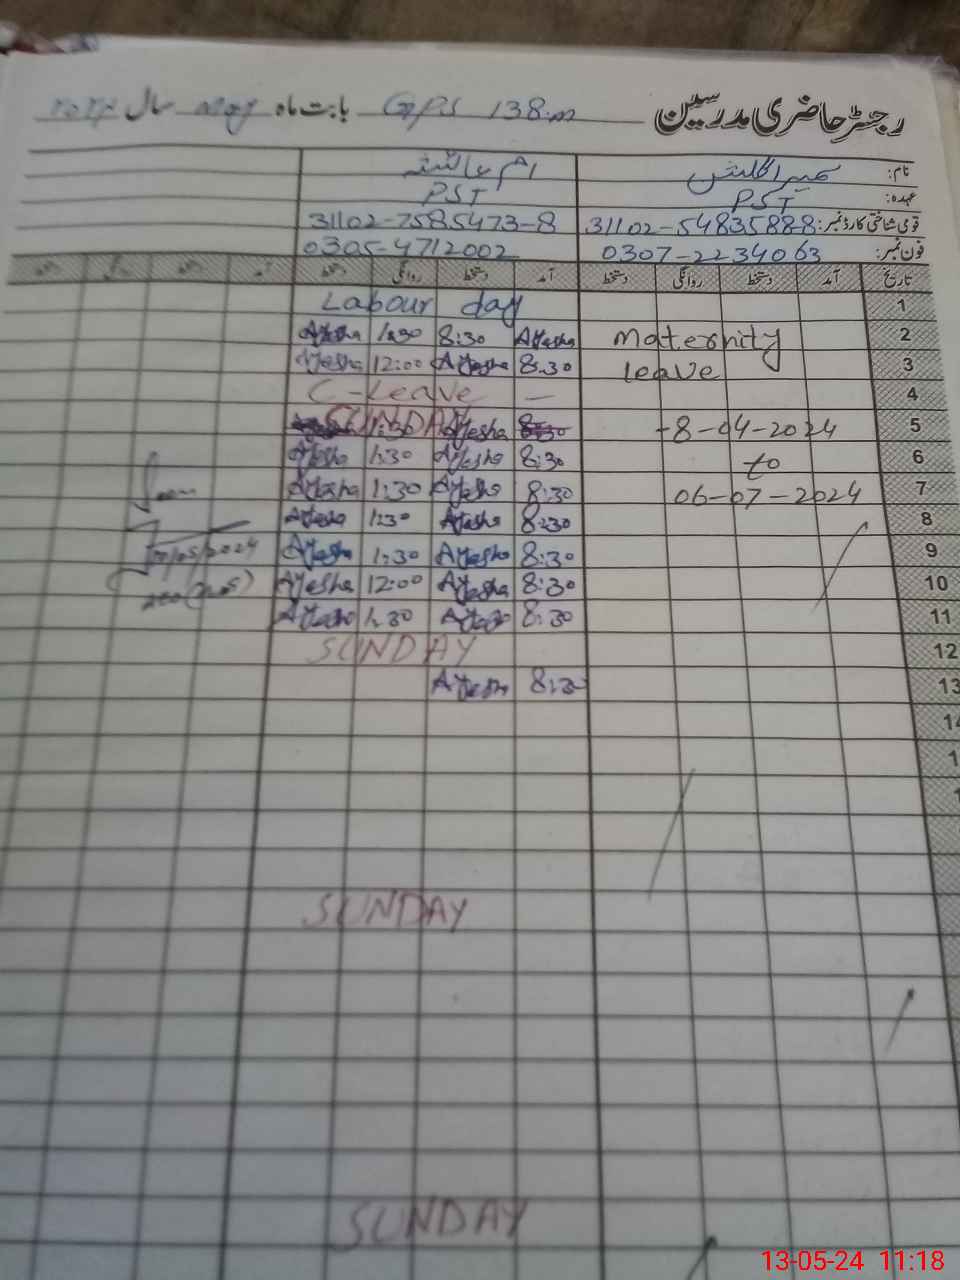 رجسٹر حاضری مدرسین GPS 138.m بابت ماہ May سال ۲۰۲۴
نام: عبیرا گلشن ام عائشہ
عہدہ: PST PST
قومی شناختی کارڈ نمبر: 31102-5483588-8 31102-7585473-8
فون نمبر: 0307-2234063 0305-4712002
تاریخ آمد دستخط روانگی دستخط آمد دستخط روانگی دستخط آمد
1 Labour day
2 Maternity Ayesha 8:30 1:30 Ayesha
3 leave 8:30 Ayesha 12:00 Ayesha
4 C-Leave —
5 -8-04-2024 8:30 Ayesha 1:30 SUNDAY
6 to 8:30 Ayesha 1:30 Ayesha
7 06-07-2024 8:30 Ayesha 1:30 Ayesha
8 8:30 Ayesha 1:30 Ayesha
9 8:30 Ayesha 1:30 Ayesha /05/2024
10 8:30 Ayesha 12:00 Ayesha
11 8:30 Ayesha 1:30 Ayesha
12 SUNDAY
13 8:30 Ayesha
14
SUNDAY
SUNDAY
13-05-24 11:18